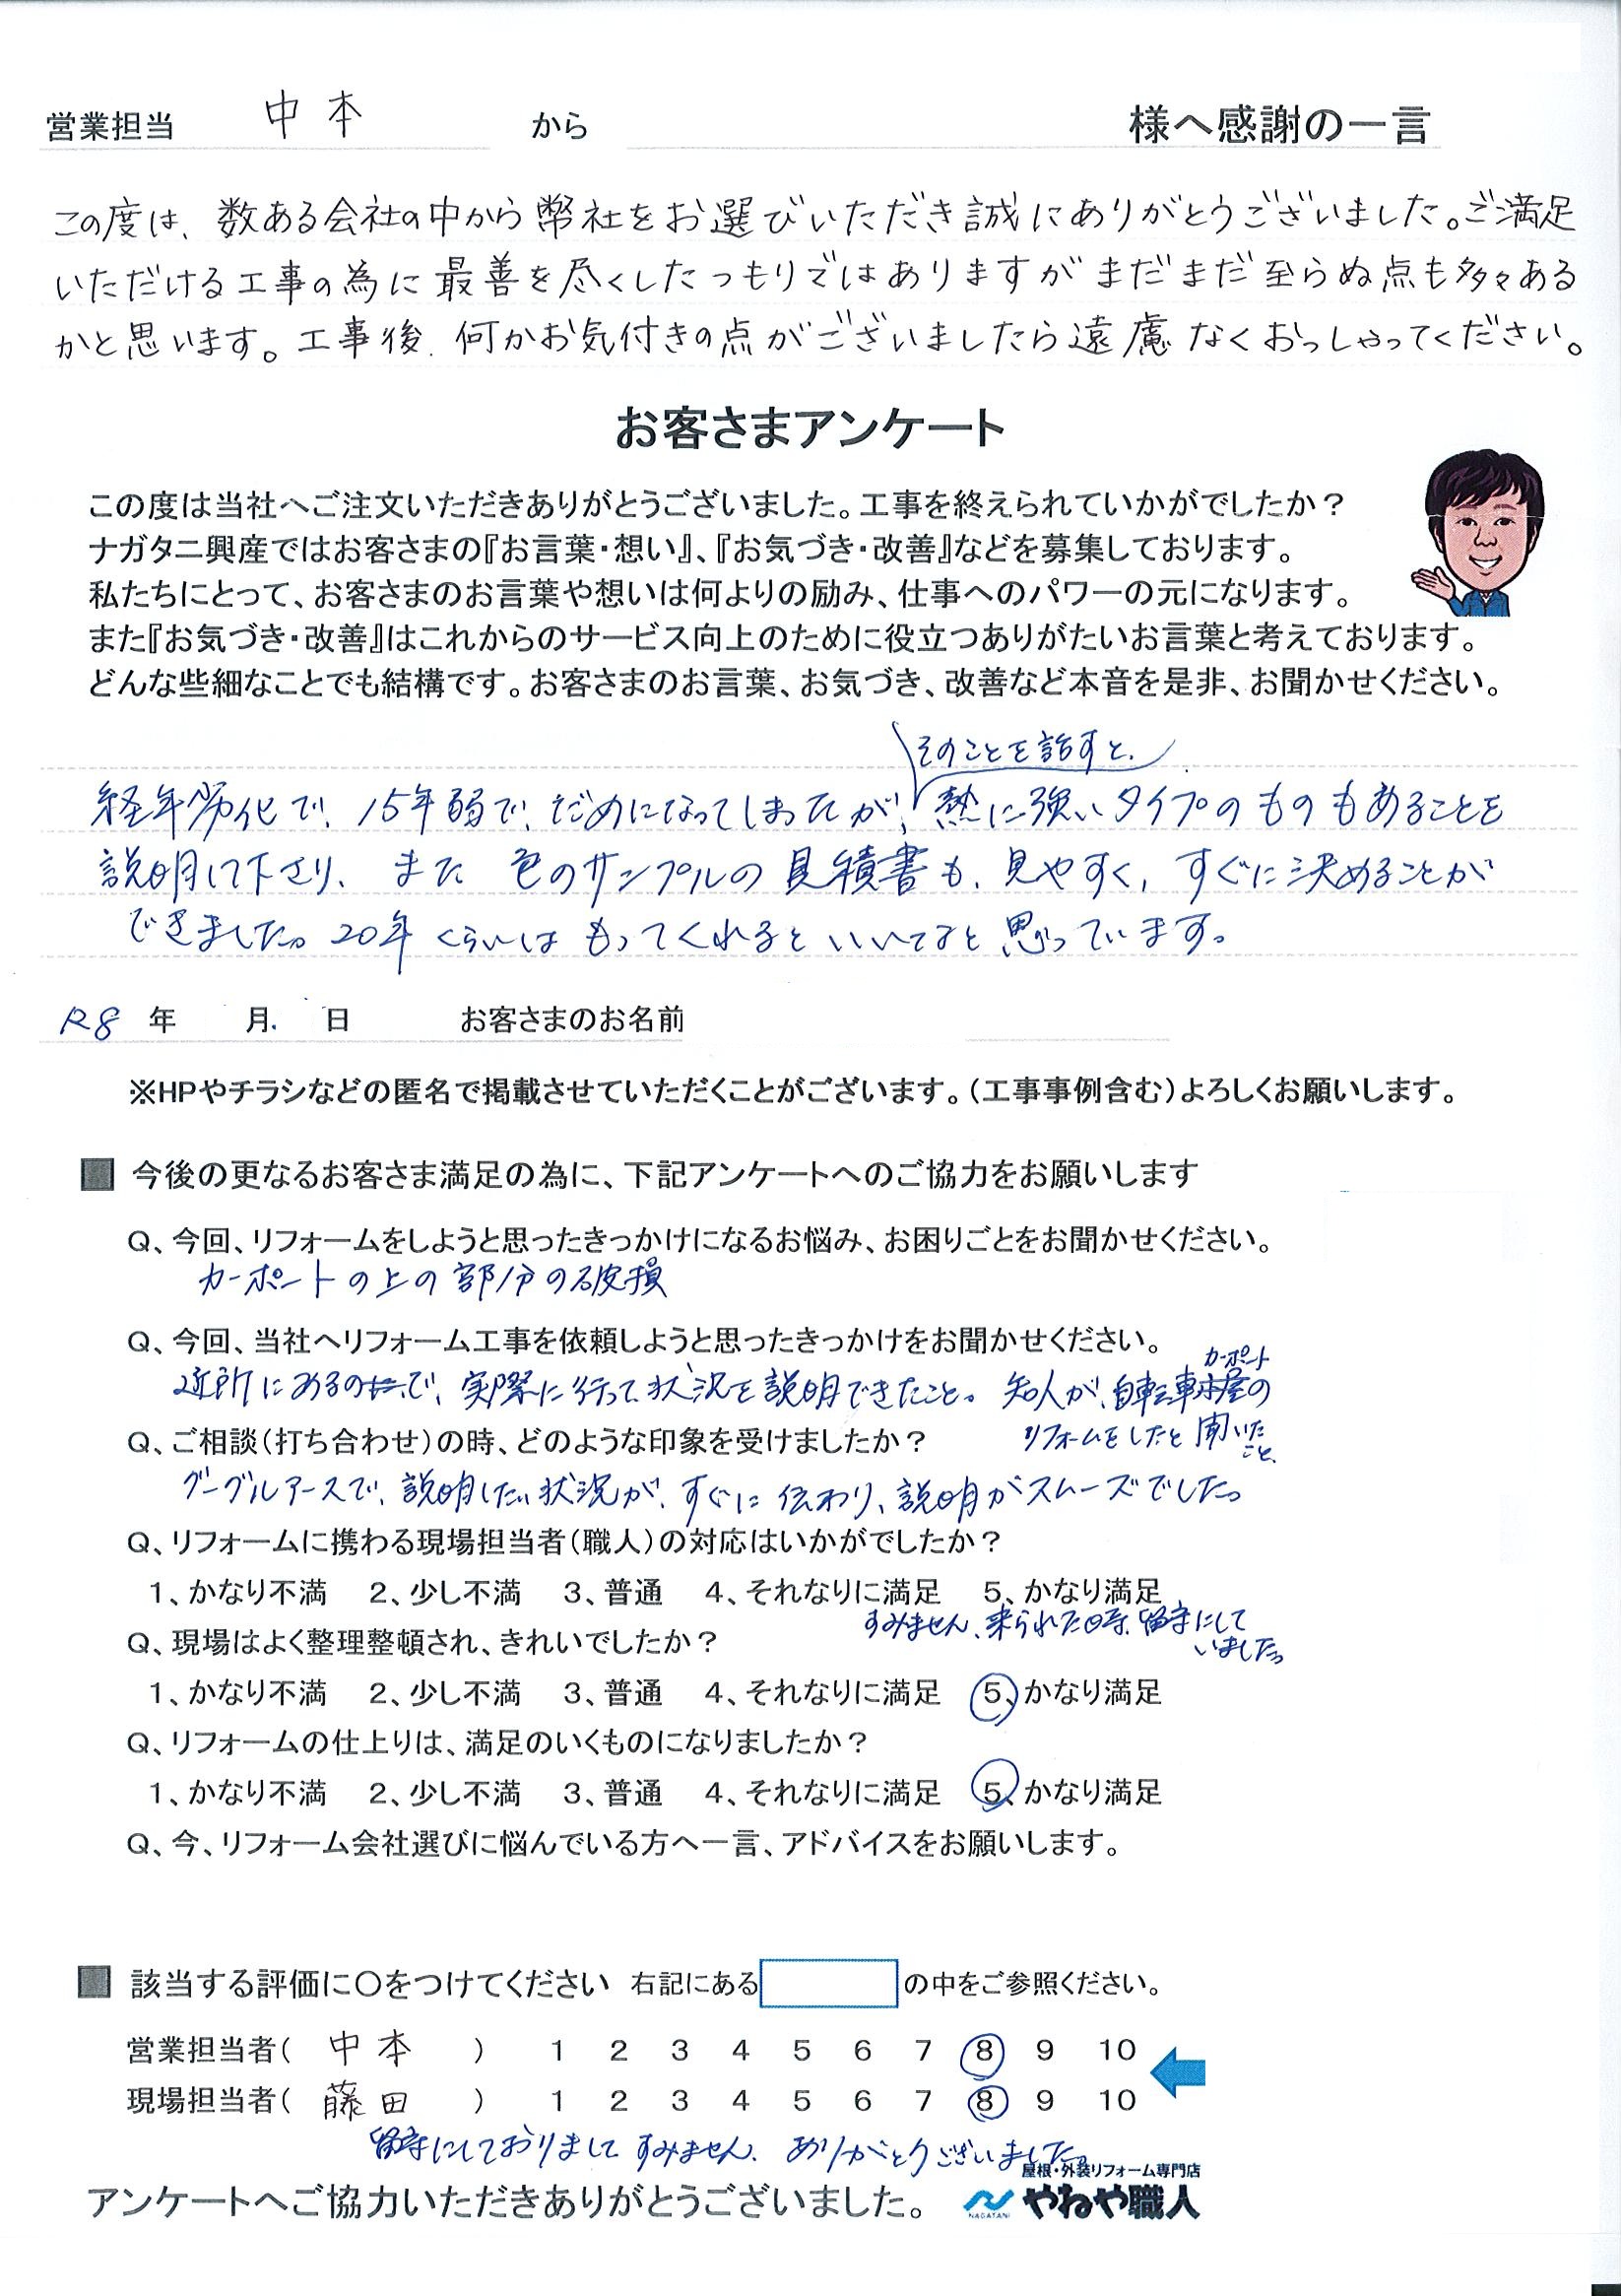 営業担当 中本 から 様へ感謝の一言
この度は、数ある会社の中から幣社をお選びいただき誠にありがとうございました。ご満足
いただける工事の為に最善を尽くしたつもりではありますがまだまだ至らぬ点も多々ある
かと思います。工事後、何かお気付きの点がございましたら遠慮なくおっしゃってください。
お客さまアンケート
この度は当社へご注文いただきありがとうございました。工事を終えられていかがでしたか？
ナガタニ興産ではお客さまの『お言葉・想い』、『お気づき・改善』などを募集しております。
私たちにとって、お客さまのお言葉や想いは何よりの励み、仕事へのパワーの元になります。
また『お気づき・改善』はこれからのサービス向上のために役立つありがたいお言葉と考えております。
どんな些細なことでも結構です。お客さまのお言葉、お気づき、改善など本音を是非、お聞かせください。
そのことを話すと、
経年劣化で、15年弱で、だめになってしまったが、熱に強いタイプのものもあることを
説明して下さり、また 色のサンプルの見積書も、見やすく、すぐに決めることが
できました。20年くらいはもってくれるといいなと思っています。
R8 年 月 日 お客さまのお名前
※HPやチラシなどの匿名で掲載させていただくことがございます。（工事事例含む）よろしくお願いします。
■ 今後の更なるお客さま満足の為に、下記アンケートへのご協力をお願いします
Q、今回、リフォームをしようと思ったきっかけになるお悩み、お困りごとをお聞かせください。
カーポートの上の部分の破損
Q、今回、当社へリフォーム工事を依頼しようと思ったきっかけをお聞かせください。
カーポート
近所にあるので、実際に行って状況を説明できたこと。知人が、自転車小屋の
リフォームをしたと聞いた
こと。
Q、ご相談（打ち合わせ）の時、どのような印象を受けましたか？
グーグルアースで、説明したい状況が、すぐに伝わり、説明がスムーズでした。
Q、リフォームに携わる現場担当者（職人）の対応はいかがでしたか？
1、かなり不満 2、少し不満 3、普通 4、それなりに満足 5、かなり満足
すみません、来られた時、留守にして
いました。
Q、現場はよく整理整頓され、きれいでしたか？
1、かなり不満 2、少し不満 3、普通 4、それなりに満足 5、かなり満足
Q、リフォームの仕上りは、満足のいくものになりましたか？
1、かなり不満 2、少し不満 3、普通 4、それなりに満足 5、かなり満足
Q、今、リフォーム会社選びに悩んでいる方へ一言、アドバイスをお願いします。
■ 該当する評価に〇をつけてください 右記にある の中をご参照ください。
営業担当者（ 中本 ） 1 2 3 4 5 6 7 8 9 10
現場担当者（ 藤田 ） 1 2 3 4 5 6 7 8 9 10
留守にしておりまして すみません。ありがとうございました。
屋根・外装リフォーム専門店
アンケートへご協力いただきありがとうございました。 NAGATANI やねや職人